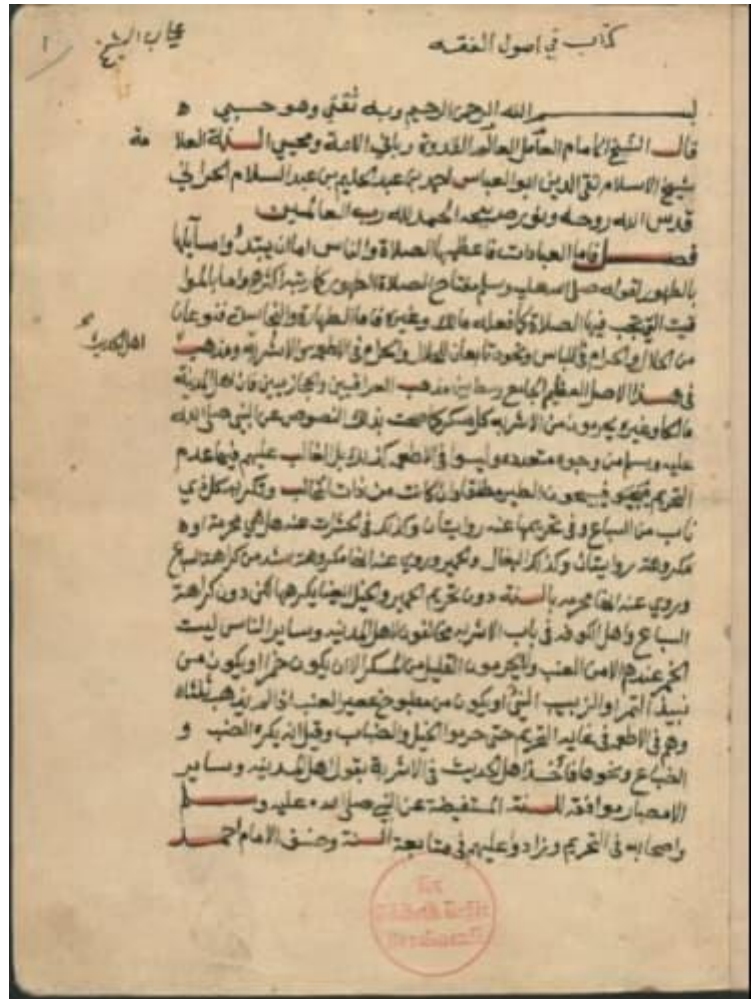 كتاب في اصول الفقه
١
بسم الله الرحمن الرحيم وبه ثقتي وهو حسبي
قال الشيخ الامام العامل العالم القدوة رباني الامة ومحيي السنة العلا
مة
شيخ الاسلام تقي الدين ابو العباس احمد بن عبد الحليم بن عبد السلام الحراني
قدس الله روحه ونور ضريحه الحمد لله رب العالمين
فصل فاما العبادات فاعظمها الصلاة والناس اما ان يبتدؤا مسايلها
بالطهور لقوله صلى الله عليه وسلم مفتاح الصلاة الطهور كما رتبه اكثرهم واما بالموا
قيت التي تجب فيها الصلاة كما فعله مالك وغيره فاما الطهارة والنجاسة فنوعان
من الحلال والحرام في اللباس ونحوه تابعان للحلال والحرام في الاطعمة والاشربة ومذهب
اهل الحديث
في هذا الاصل العظيم الجامع وسط بين مذهب العراقيين والحجازيين فان اهل المدينة
مالكا وغيره يحرمون من الاشربة كل مسكر كما صحت بذلك النصوص عن النبي صلى الله
عليه وسلم من وجوه متعددة وليسوا في الاطعمة كذلك بل الغالب عليهم فيها عدم
التحريم فيبيحون الطير مطلقا وان كانت من ذات المخالب ويكره كل ذي
ناب من السباع وفي تحريمها عنه روايتان وكذلك في الحشرات عنه هل هي محرمة او
مكروهة روايتان وكذلك البغال والحمير وروي عنه انها مكروهة اشد من كراهة السباع
وروي عنه انها محرمة بالسنة دون تحريم الحمير والخيل ايضا يكرهها لكن دون كراهة
السباع واهل الكوفة في باب الاشربة مخالفون لاهل المدينة وساير الناس ليست
الخمر عندهم الا من العنب ولا يحرمون القليل من المسكر الا ان يكون خمرا او يكون من
نبيذ التمر او الزبيب النيء او يكون من مطبوخ عصير العنب اذا لم يذهب ثلثاه
وهم في الاطعمة في غاية التحريم حتى حرموا الخيل والضباب وقيل انه يكره الضب و
الضباع ونحوها فاخذ اهل الحديث في الاشربة بقول اهل المدينة وساير
الامصار موافقة للسنة المستفيضة عن النبي صلى الله عليه وسلم
واصحابه في التحريم وزادوا عليهم في متابعة السنة وصنف الامام احمد